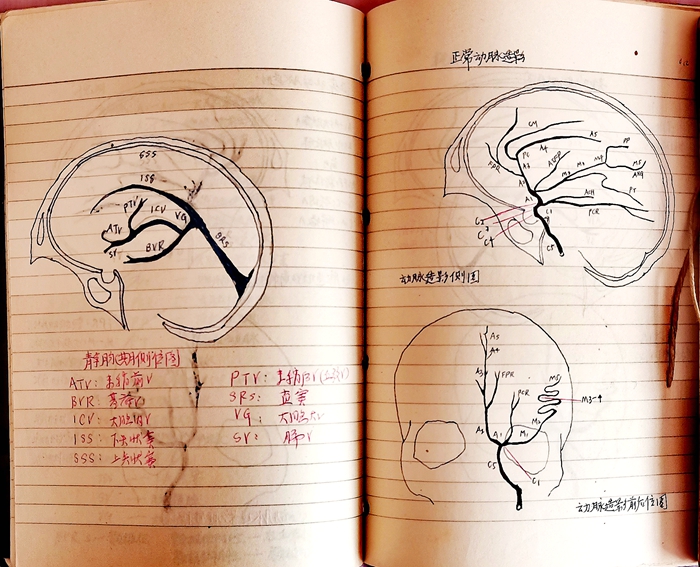 SSS
ISS
PTV
ICV
VG
ATV
BRS
SV
BVR
静脉期侧位图
ATV: 丰纹前V
BVR: 基底V
ICV: 大脑内V
ISS: 下矢状窦
SSS: 上矢状窦
SRS: 直窦
VG: 大脑大V
SV:
正常动脉造影
CM
A5
A4
PC
A3
FPR
PP
M5
ANG
PT
PCR
C1
C2
C3
C4
C5
动脉造影侧位图
A5
A4
A3
FPR
PCR
M5
M3-4
A2
A1
M1
M2
C5
C1
动脉造影前后位图